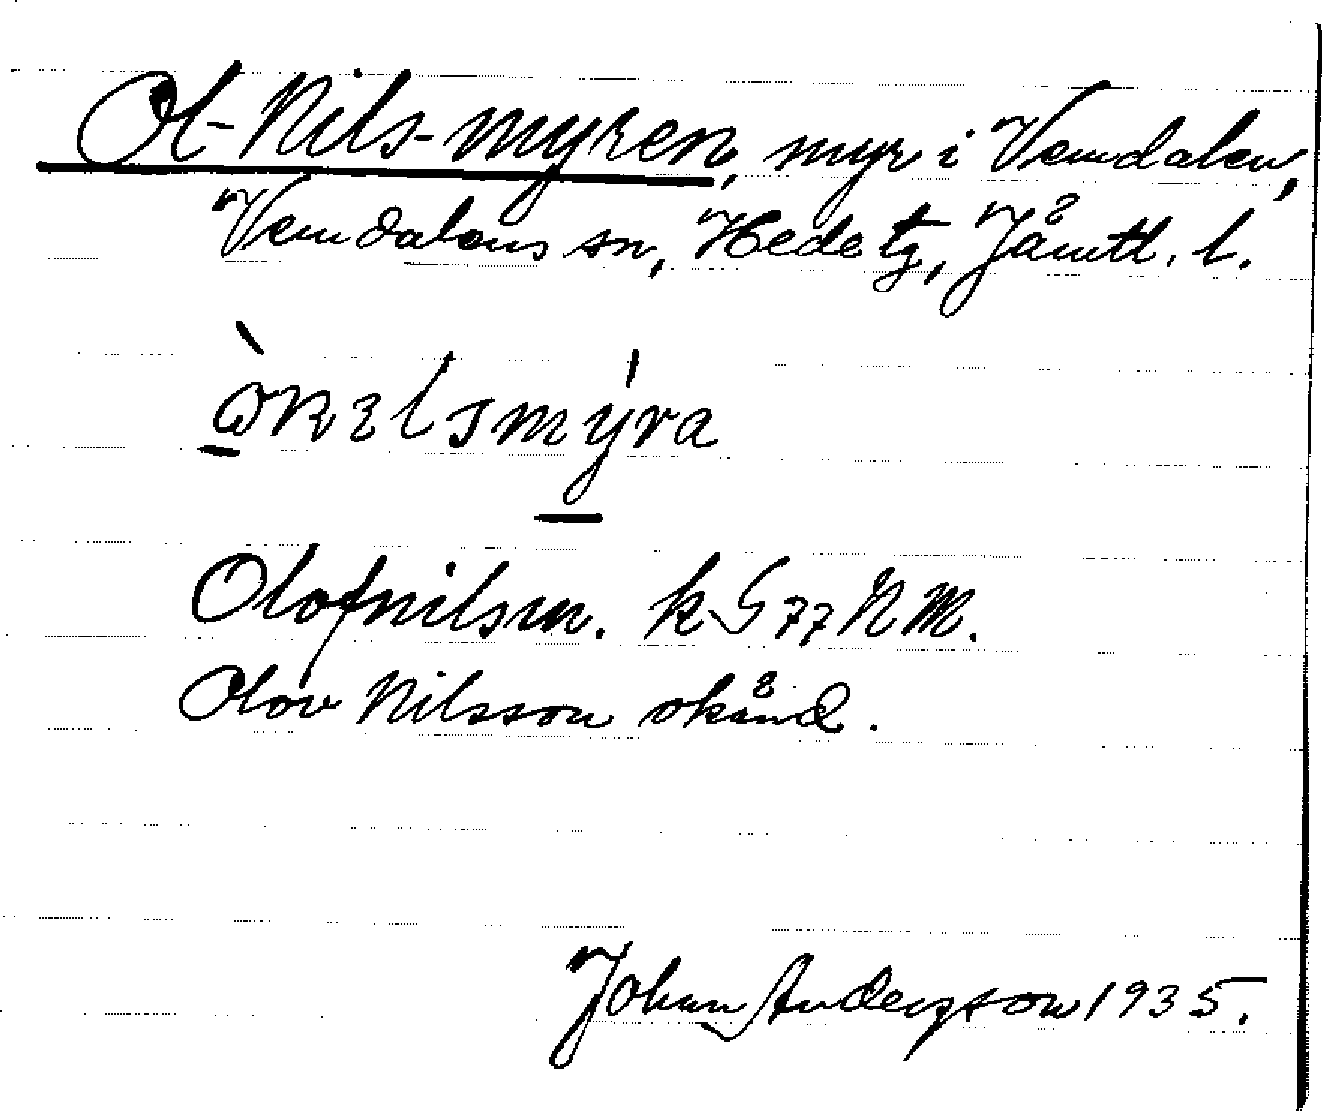 Ol-Nils-myren, myr i Vemdalen,
Vemdalens sn, Hede tg, Jämtl. l.
Olofnilsm. k G 77 N M.
Olov Nilsson okänd.
Johan Andersson 1935.